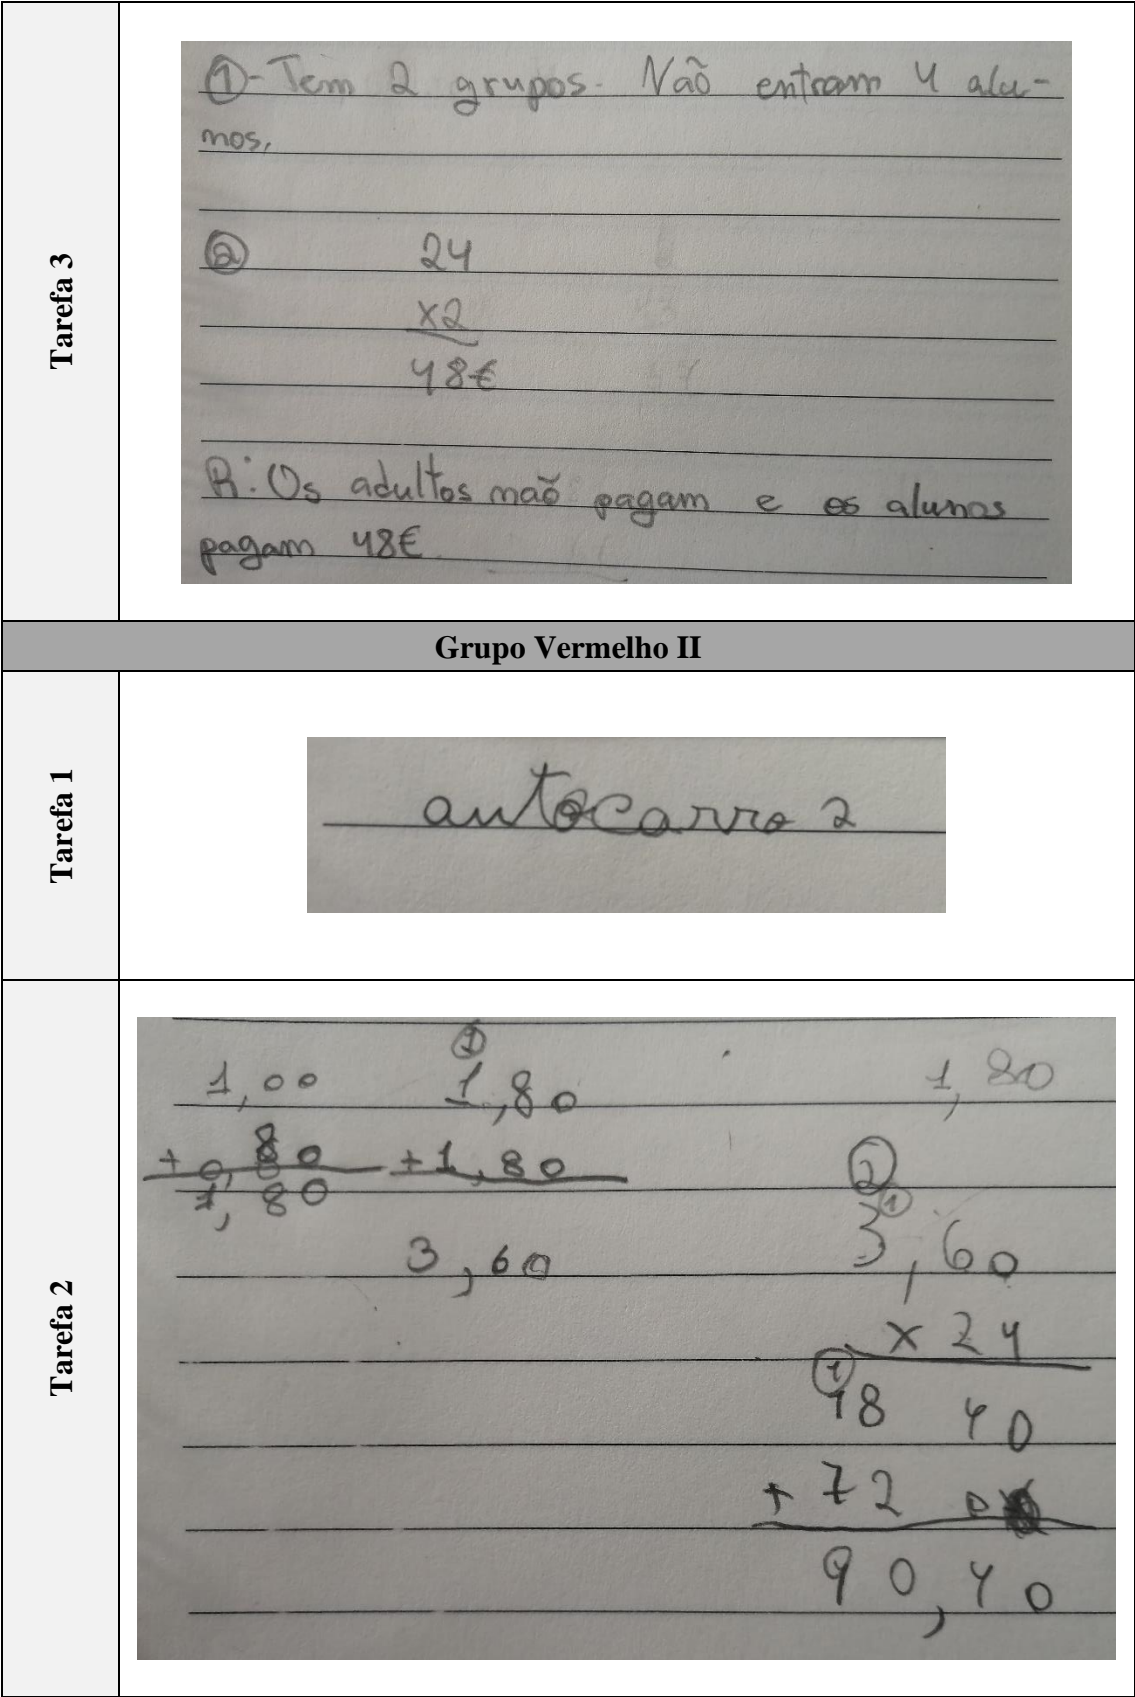 Tarefa 3
①-Tem 2 grupos. Não entram 4 alu-
nos.
② 24
x2
48€
R: Os adultos não pagam e os alunos
pagam 48€
Grupo Vermelho II
Tarefa 1
autocarro 2
Tarefa 2
①
1,00 1,80 1,80
+ 0,80 + 1,80 ②
1,80 ①
3,60 3,60
x 24
①
18 40
+ 72 0
90,40